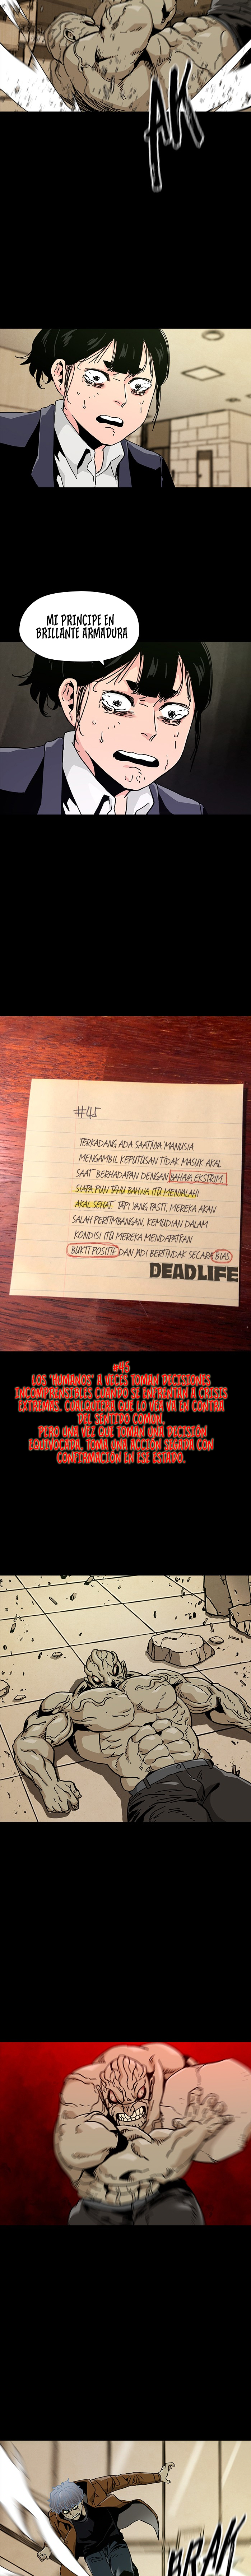 AK
MI PRINCIPE EN
BRILLANTE ARMADURA
#45
TERKADANG ADA SAATNYA MANUSIA
MENGAMBIL KEPUTUSAN TIDAK MASUK AKAL
SAAT BERHADAPAN DENGAN BAHAYA EKSTRIM.
SIAPA PUN TAHU BAHWA ITU MENYALAHI
AKAL SEHAT. TAPI YANG PASTI, MEREKA AKAN
SALAH PERTIMBANGAN, KEMUDIAN DALAM
KONDISI ITU MEREKA MENDAPATKAN
BUKTI POSITIF DAN JADI BERTINDAK SECARA BIAS
DEAD LIFE
#45
LOS "HUMANOS" A VECES TOMAN DECISIONES
INCOMPRENSIBLES CUANDO SE ENFRENTAN A CRISIS
EXTREMAS. CUALQUIERA QUE LO VEA VA EN CONTRA
DEL SENTIDO COMÚN.
PERO UNA VEZ QUE TOMAN UNA DECISIÓN
EQUIVOCADA, TOMA UNA ACCIÓN SEGADA CON
CONFIRMACIÓN EN ESE ESTADO.
BRAK